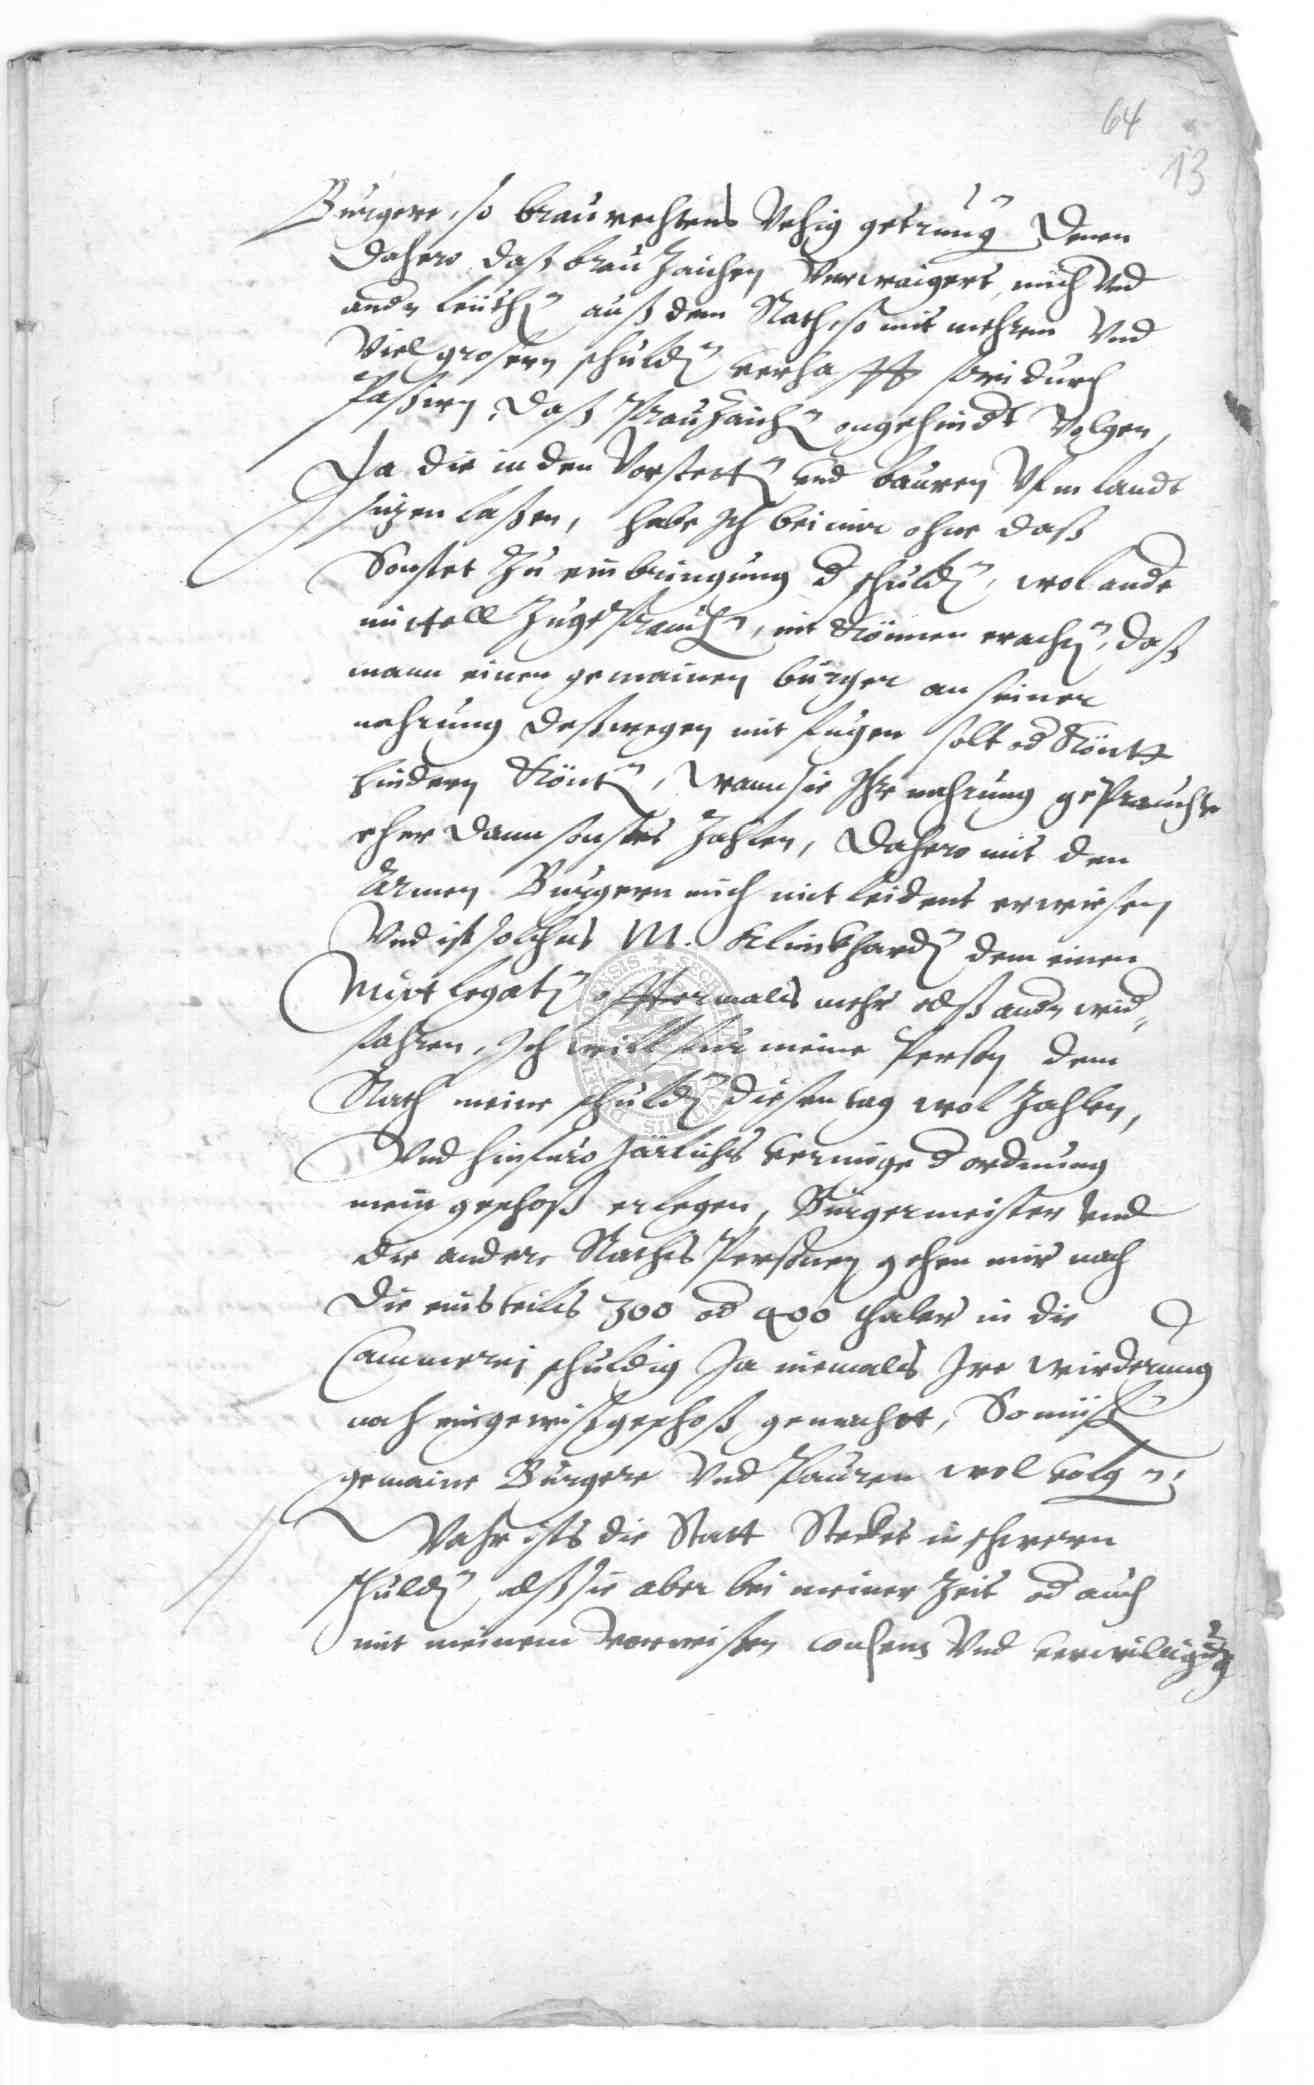 64
13
Burgere, so brauwerckens Vehig getrung Denen
Dahero daß brau Zaichen Verwaigert, mich Vnd
andr leuth auß dem Rath, so mit mehrern Vnd
Viel grosern schuld verhafft frei durch
Paßirn, daß Brauzaich ongehindt Volgen,
Ja die in den Vorstett vnd bauren Vfm landt
sizen laßen, habe Ich bei mir ohne daß
Sonsten Zu einbringung d schuld, wol ande
mittell Zugebrauch, nit können erach, daß
mann einen gemainen burger an seiner
nahrung deßwegen mit fugen solt od könt
hindern könt, Wann sie Ihr nahrung gebraucht
eher dann sonsten Zahlen, Dahero mit den
Armen Burgern mich mitleident erwiesen
Vnd ist solches M. Klinkhard dem einen
Mitlegat offtermals mehr alß andr wid
fahren, Ich will fur meine Person dem
Rath meine schuld diesen tag wol Zahlen,
Vnd hinfuro Järlichs vermöge d ordnung
mein geschoß erlegen, Burgermeister vnd
die andere Raths Personen gehen mir nach
Die einstheils 300 od 400 thaler in die
Cammerei schuldig Ja niemals Ire wirderung
noch ein gewiß geschoß gemacht, So müß
gemaine Burgere Vnd Pauren wol volg
Wahr ists die Statt Stecket in schweren
schuld, alß sie aber bei meiner Zeit od auch
mit meinem vorwißen consens Vnd verwilligung